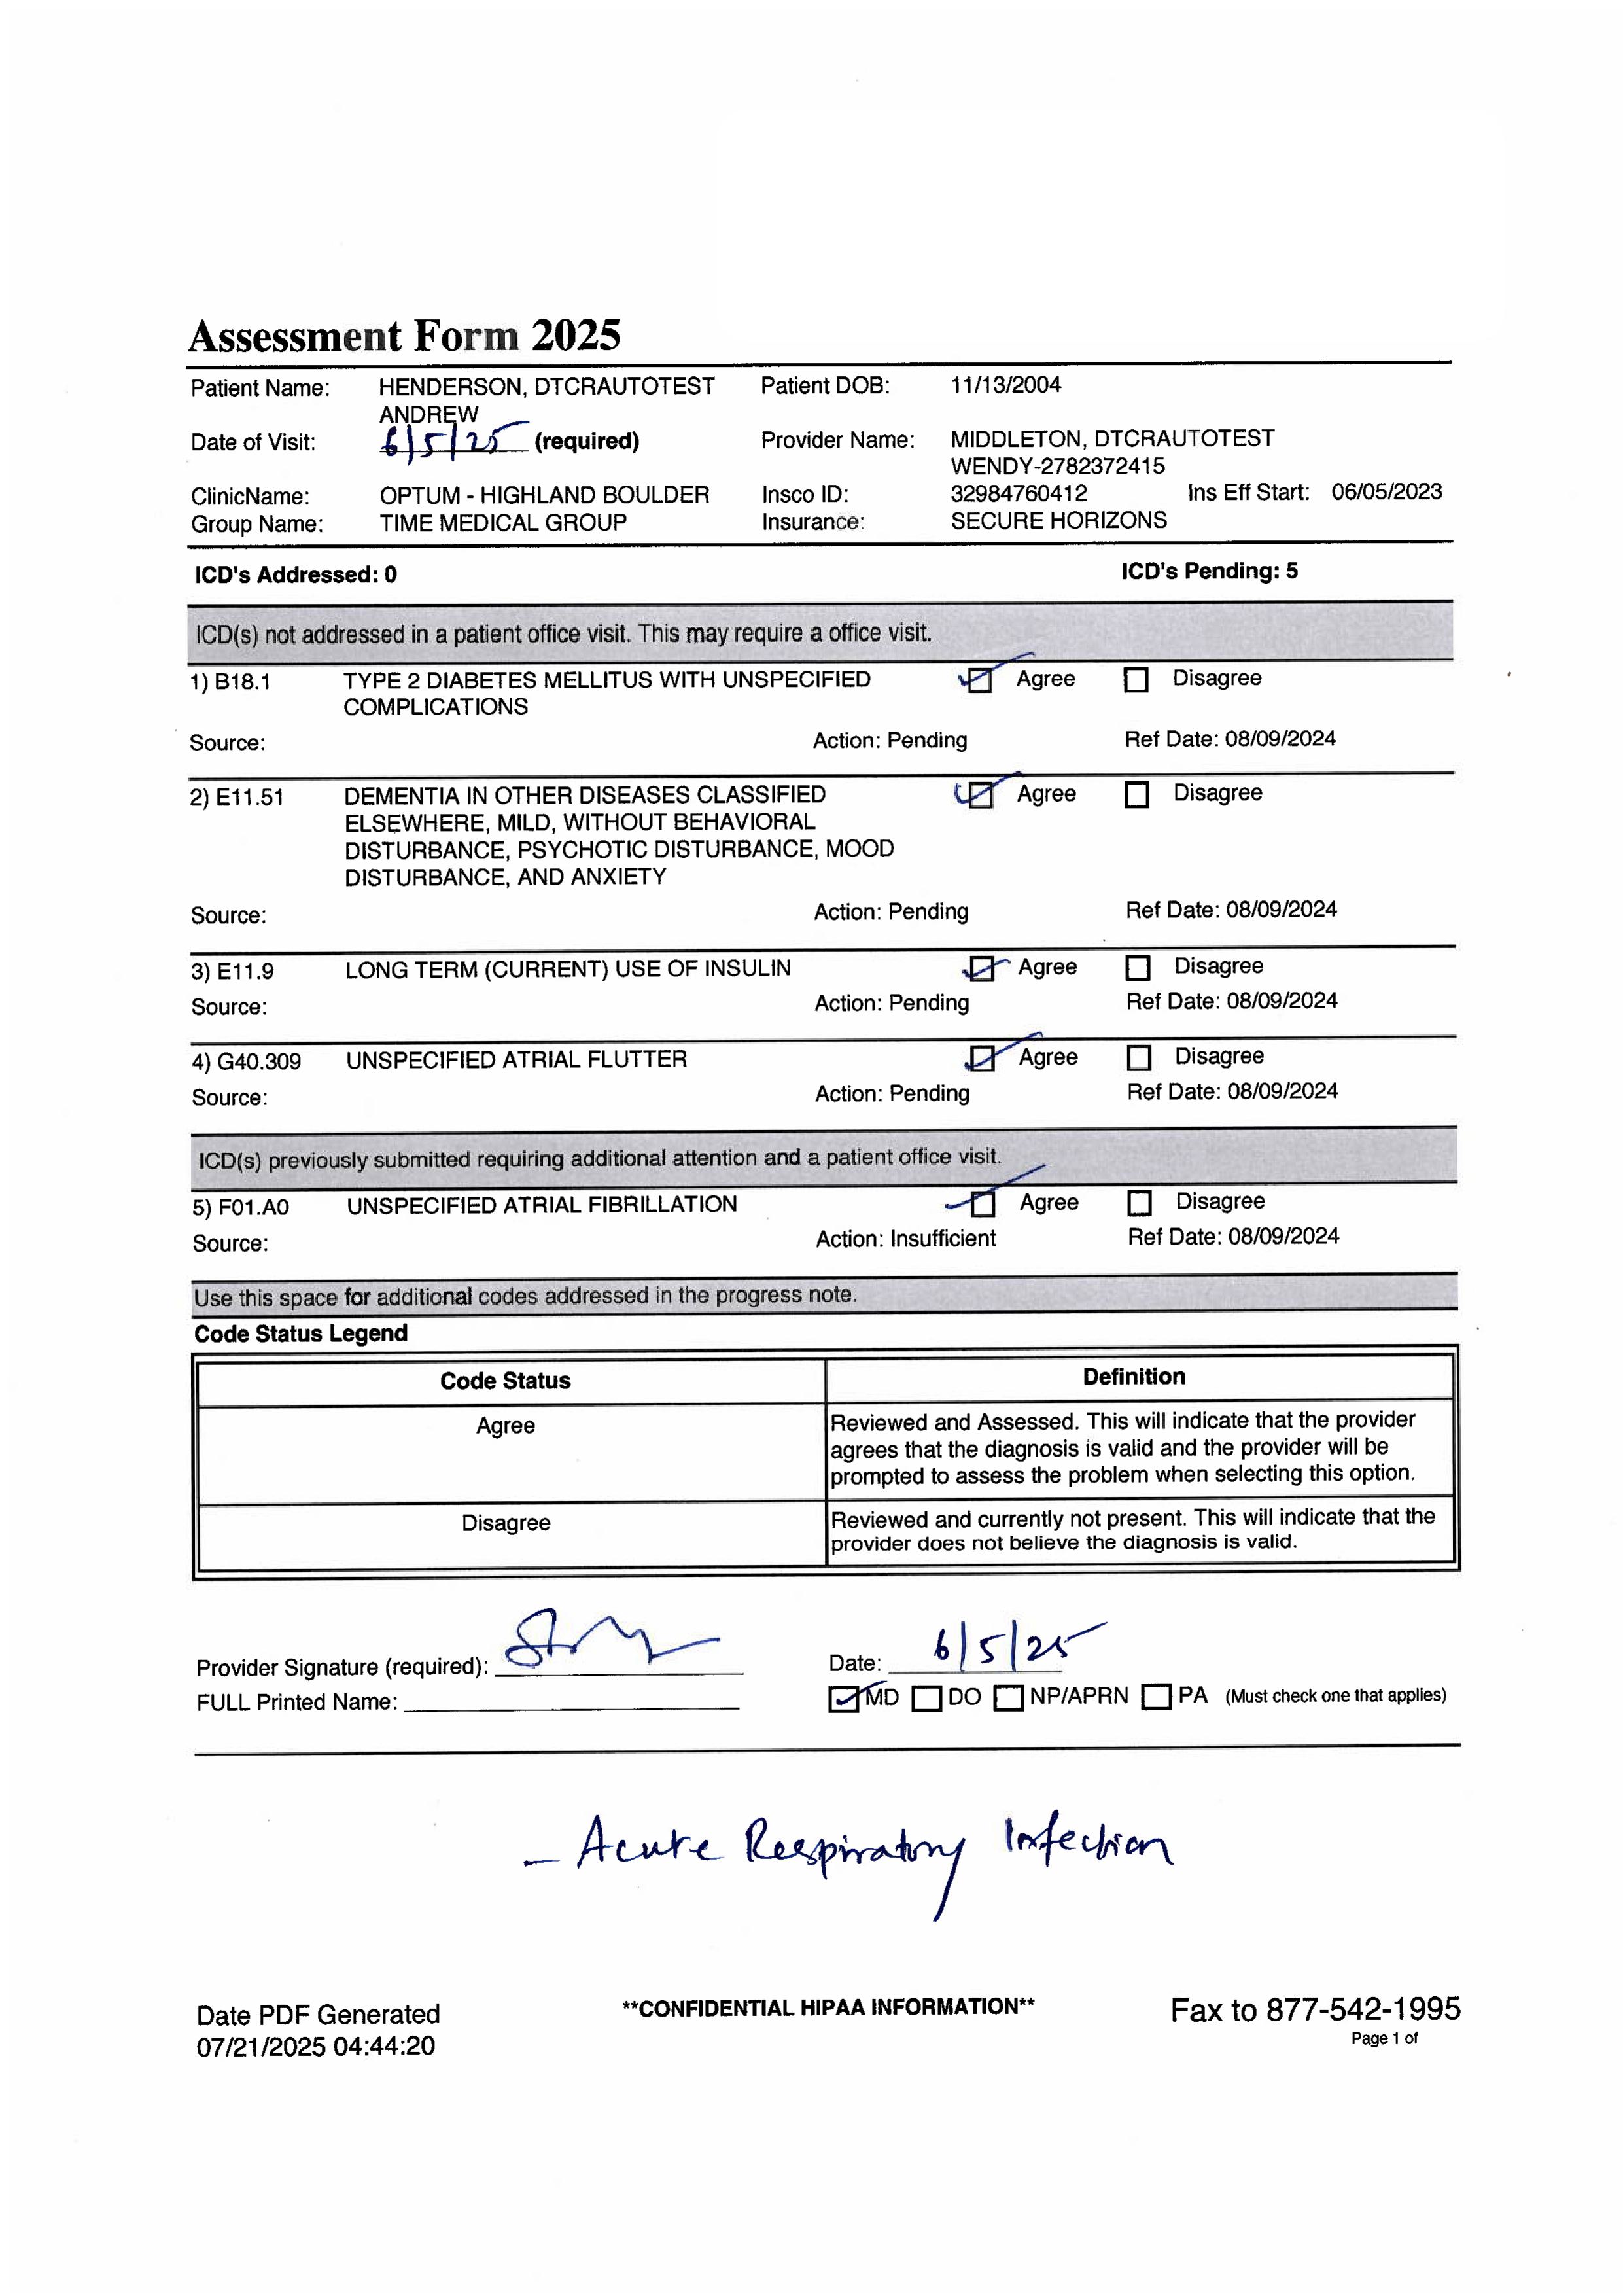 Assessment Form 2025
Patient Name: HENDERSON, DTCRAUTOTEST ANDREW Patient DOB: 11/13/2004
Date of Visit: 6/5/25 (required) Provider Name: MIDDLETON, DTCRAUTOTEST WENDY-2782372415
ClinicName: OPTUM - HIGHLAND BOULDER Insco ID: 32984760412 Ins Eff Start: 06/05/2023
Group Name: TIME MEDICAL GROUP Insurance: SECURE HORIZONS
ICD's Addressed: 0 ICD's Pending: 5
ICD(s) not addressed in a patient office visit. This may require a office visit.
1) B18.1 TYPE 2 DIABETES MELLITUS WITH UNSPECIFIED Agree Disagree
COMPLICATIONS
Source: Action: Pending Ref Date: 08/09/2024
2) E11.51 DEMENTIA IN OTHER DISEASES CLASSIFIED Agree Disagree
ELSEWHERE, MILD, WITHOUT BEHAVIORAL
DISTURBANCE, PSYCHOTIC DISTURBANCE, MOOD
DISTURBANCE, AND ANXIETY
Source: Action: Pending Ref Date: 08/09/2024
3) E11.9 LONG TERM (CURRENT) USE OF INSULIN Agree Disagree
Source: Action: Pending Ref Date: 08/09/2024
4) G40.309 UNSPECIFIED ATRIAL FLUTTER Agree Disagree
Source: Action: Pending Ref Date: 08/09/2024
ICD(s) previously submitted requiring additional attention and a patient office visit.
5) F01.A0 UNSPECIFIED ATRIAL FIBRILLATION Agree Disagree
Source: Action: Insufficient Ref Date: 08/09/2024
Use this space for additional codes addressed in the progress note.
Code Status Legend
Code Status Definition
Agree Reviewed and Assessed. This will indicate that the provider
agrees that the diagnosis is valid and the provider will be
prompted to assess the problem when selecting this option.
Disagree Reviewed and currently not present. This will indicate that the
provider does not believe the diagnosis is valid.
Provider Signature (required): Date: 6/5/25
FULL Printed Name: MD DO NP/APRN PA (Must check one that applies)
- Acute Respiratory Infection
Date PDF Generated **CONFIDENTIAL HIPAA INFORMATION** Fax to 877-542-1995
07/21/2025 04:44:20 Page 1 of